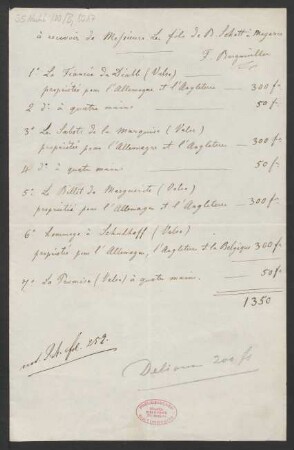 à recevoir de Messieurs Les fils de B. Schott à Mayence
F. Burgmüller
1° La Fiancée du Diable (Valse)
propriétés pour l'Allemagne et l'Angleterre — 300 fr
2 d° à quatre mains — 50 fr.
3° Les Sabots de la Marquise (Valse)
propriétés pour l'Allemagne et l'Angleterre — 300 fr
4 d° à quatre mains — 50 fr.
5° Le Billet de Marguerite (Valse)
propriétés pour l'Allemagne et l'Angleterre — 300 fr
6° Hommage à Schulhoff (Valse)
propriétés pour l'Allemagne, l'Angleterre et la Belgique 300 fr
7° La Promise (Valse) à quatre mains — 50 fr.
1350
252.
200 fr